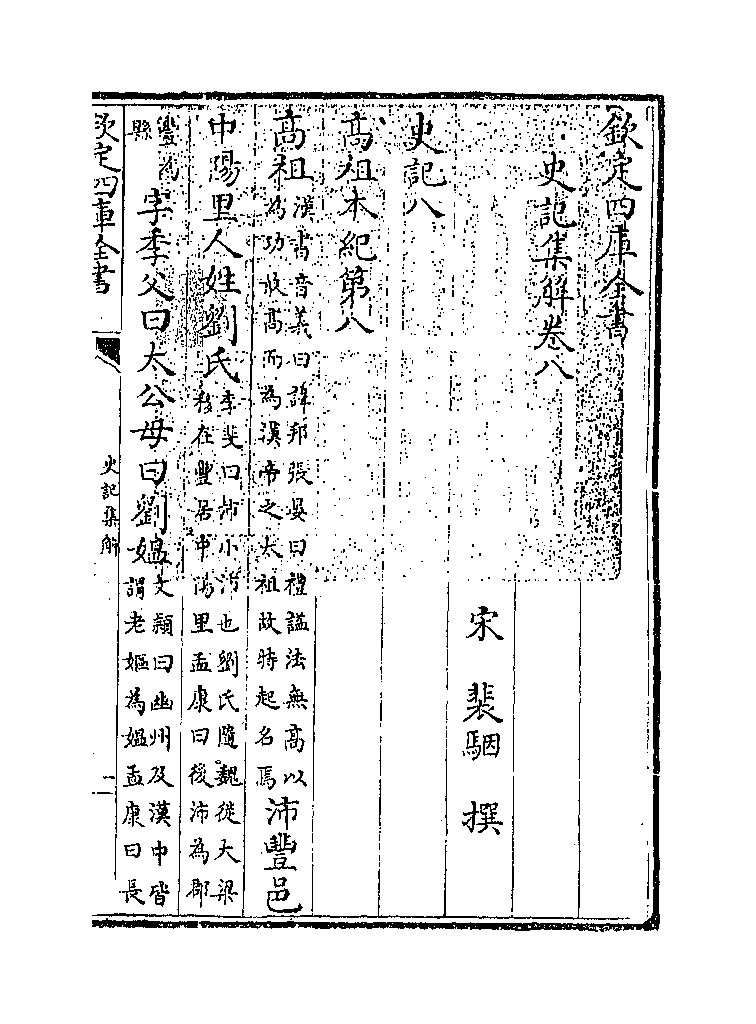 欽定四庫全書
史記集解卷八
宋 裴駰 撰
史記八
高祖本紀第八
高祖漢書音義曰諱邦張晏曰禮諡法無高以
為功最高而為漢帝之太祖故特起名焉沛豐邑
中陽里人姓劉氏李斐曰沛小沛也劉氏隨魏徙大梁
移在豐居中陽里孟康曰後沛為郡
豐為
縣字季父曰太公母曰劉媪文穎曰幽州及漢中皆
謂老嫗為媪孟康曰長
欽定四庫全書
史記集解
一